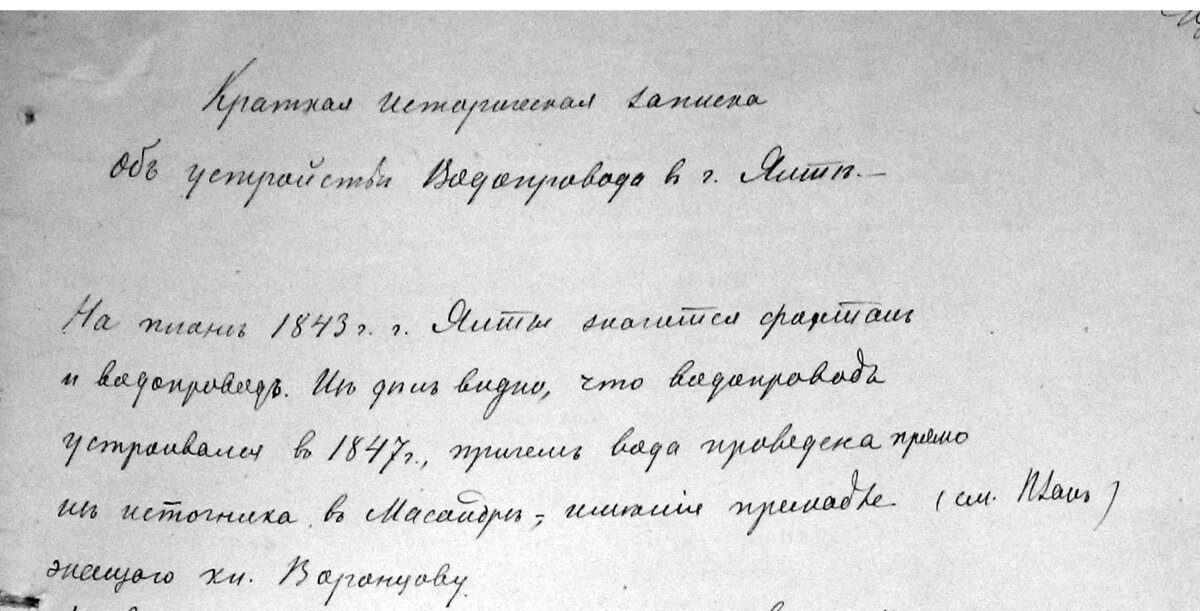 Краткая историческая записка
Объ устройствѣ Водопровода в г. Ялтѣ.—
На планѣ 1843 г. г. Ялты значится фонтанъ
и водопроводъ. Из дѣлъ видно, что водопроводъ
устроивался въ 1847 г., причемъ вода проведена прямо
изъ источника въ Масандрѣ, имѣнiя принадле (см. Планъ)
жащаго кн. Воронцову.